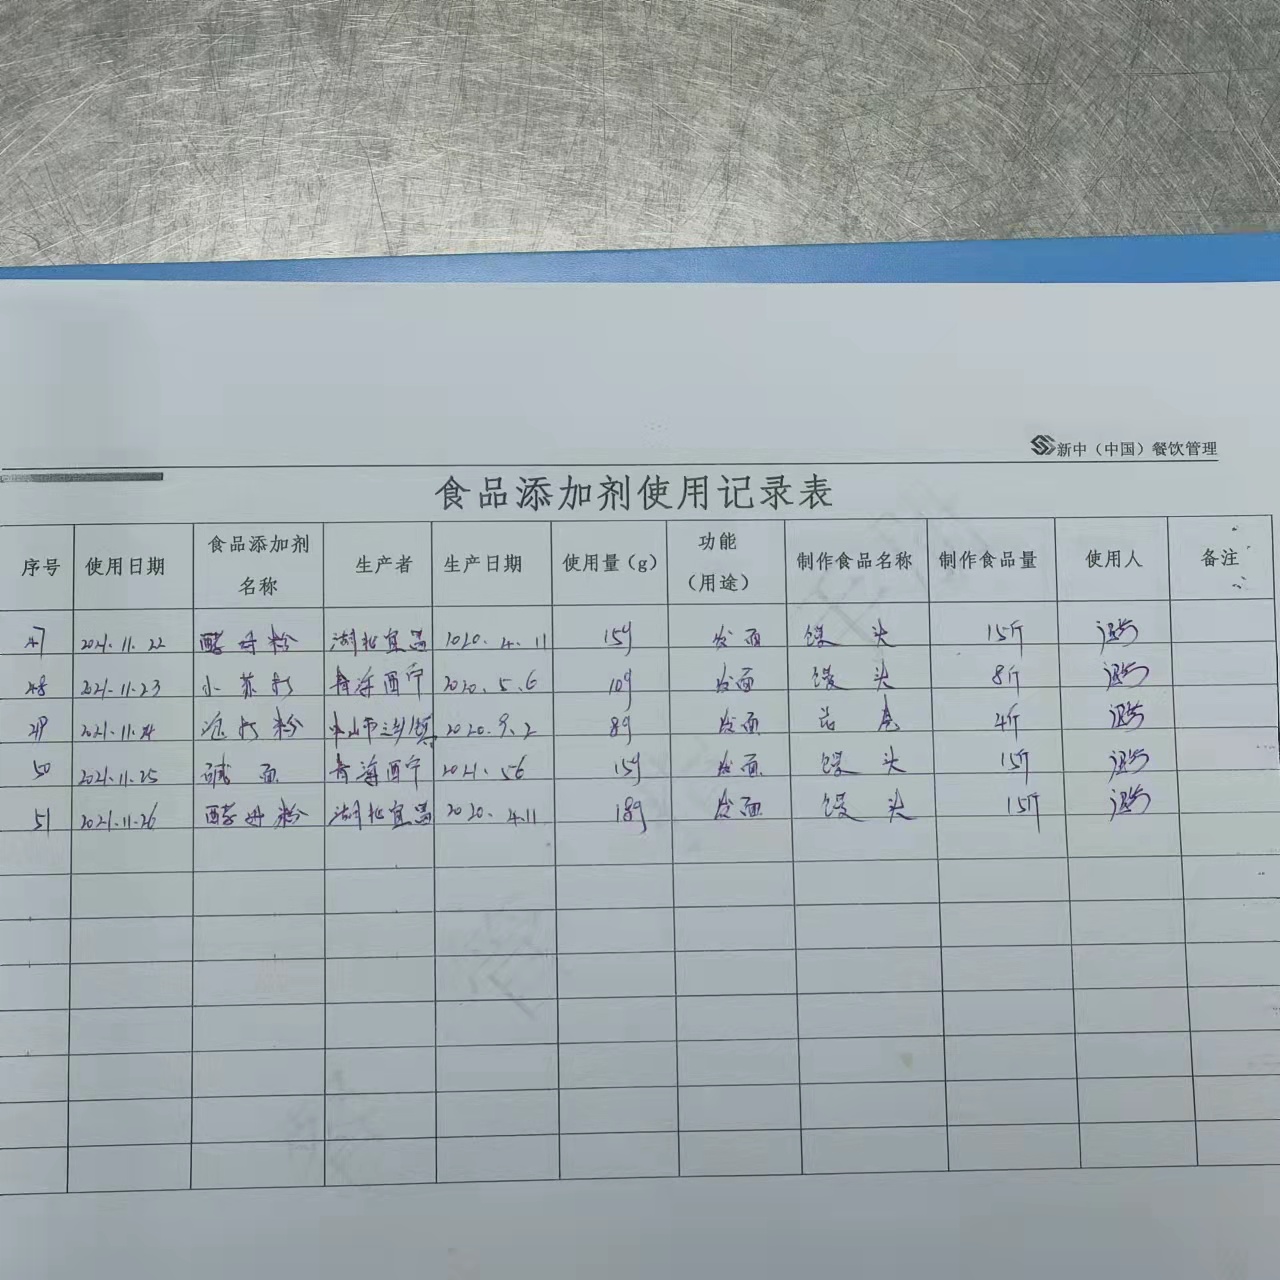 新中（中国）餐饮管理
食品添加剂使用记录表
序号 使用日期 食品添加剂名称 生产者 生产日期 使用量（g） 功能（用途） 制作食品名称 制作食品量 使用人 备注
47 2021.11.22 酵母粉 湖北宜昌 2020.4.11 15g 发面 馒头 15斤
48 2021.11.23 小苏打 青海西宁 2020.5.6 10g 发面 馒头 8斤
49 2021.11.24 泡打粉 中山市 2020.9.2 8g 发面 花卷 4斤
50 2021.11.25 碱面 青海西宁 2021.56 15g 发面 馒头 15斤
51 2021.11.26 酵母粉 湖北宜昌 2020.4.11 18g 发面 馒头 15斤